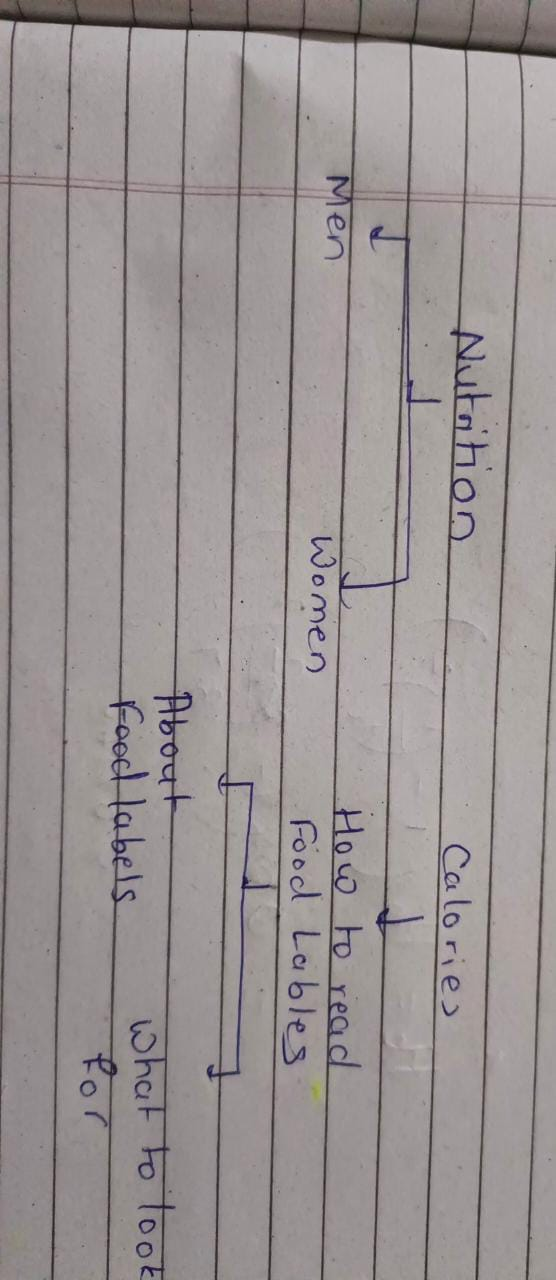 Nutrition
Men
Women
Calories
How to read
Food Lables
About
Food labels
What to look
For